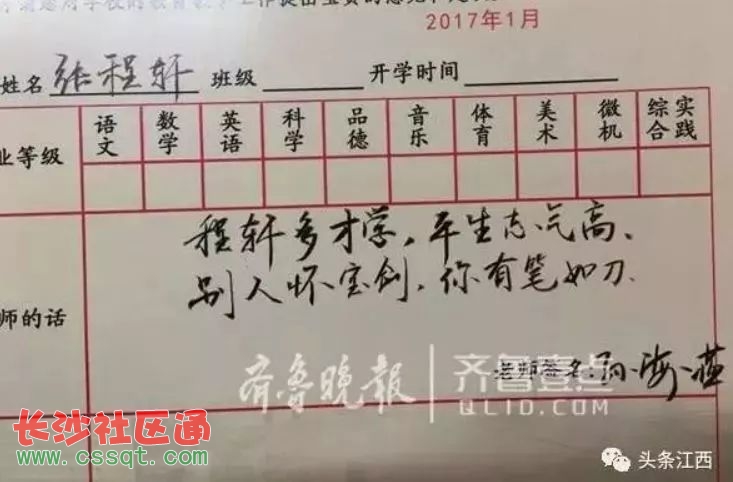 2017年1月
姓名 张程轩 班级 开学时间
业等级 语文 数学 英语 科学 品德 音乐 体育 美术 微机 综合实践
程轩多才学，平生志气高、
别人怀宝剑，你有笔如刀.
师的话
老师签名:
齐鲁晚报 齐鲁壹点
QLID.COM
长沙社区通
www.cssqt.com
头条江西